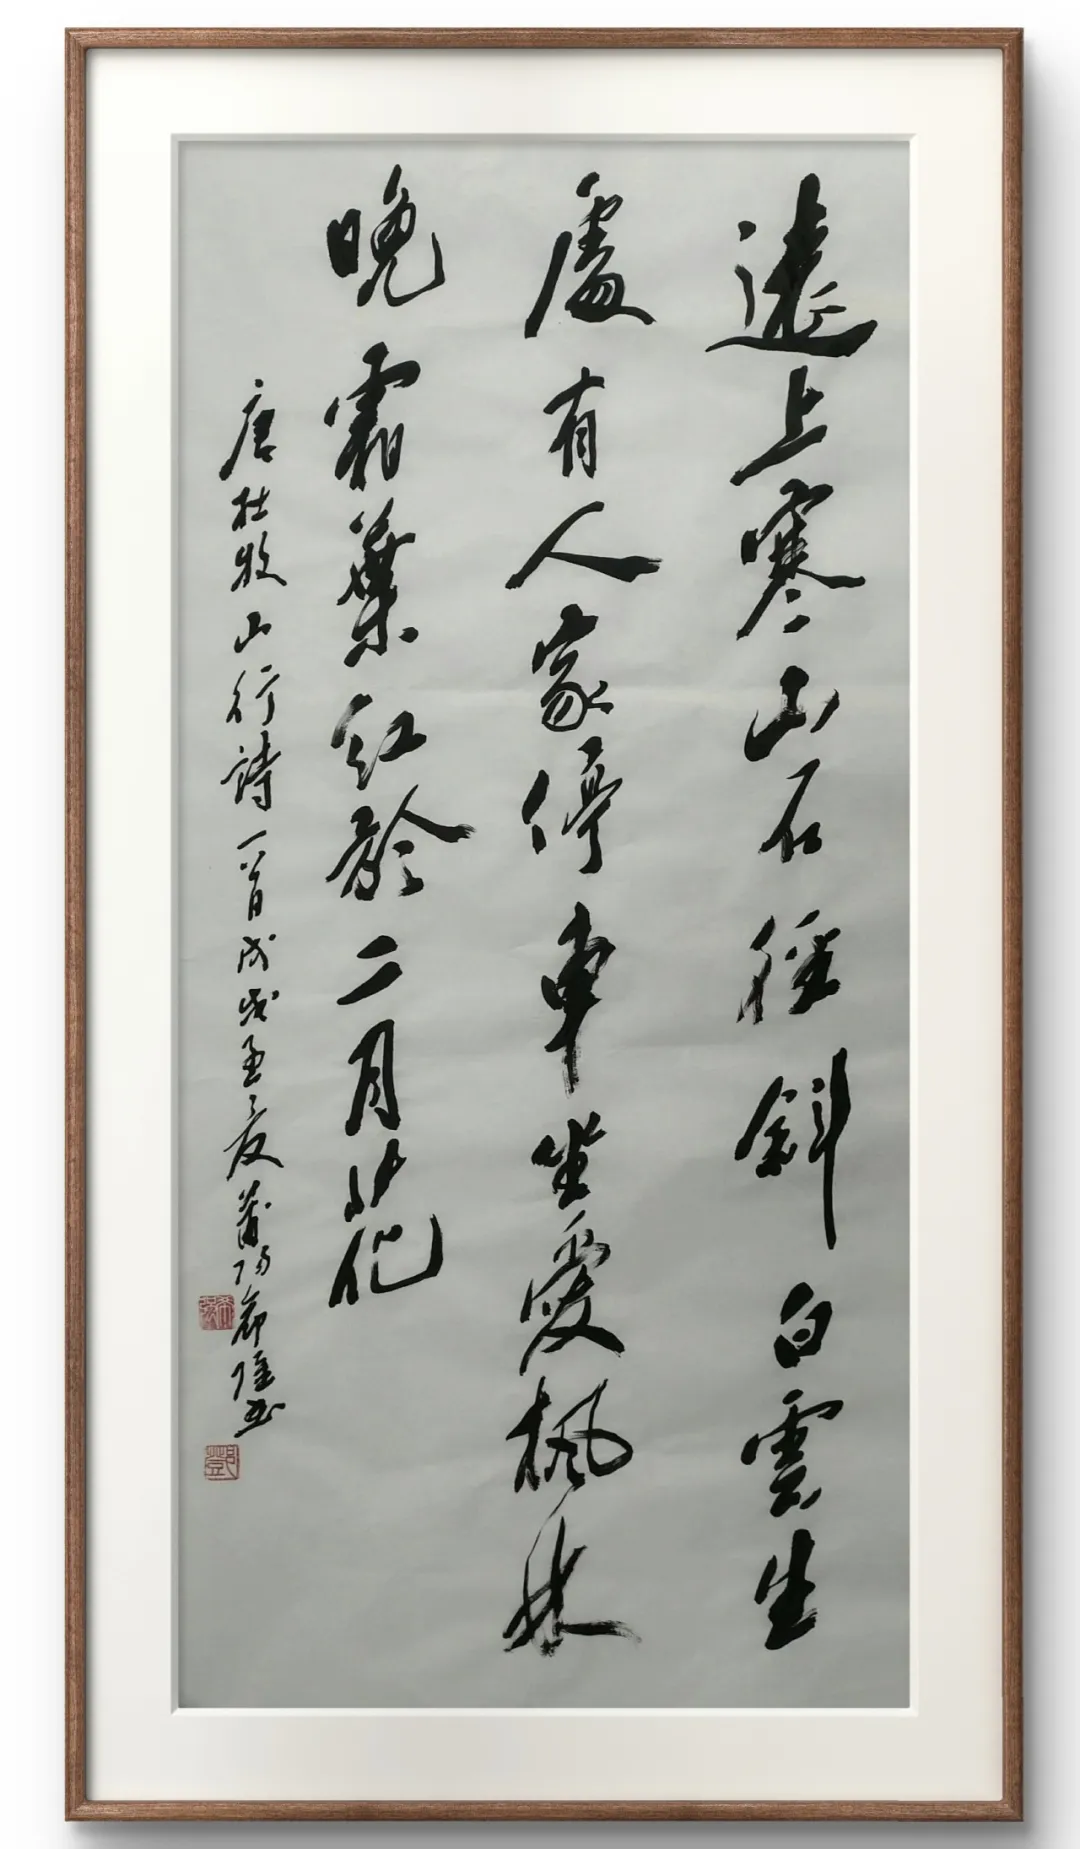 遠上寒山石徑斜白雲生
處有人家停車坐愛楓林
晚霜葉紅於二月花
唐杜牧山行詩一首戊戌孟夏莆陽